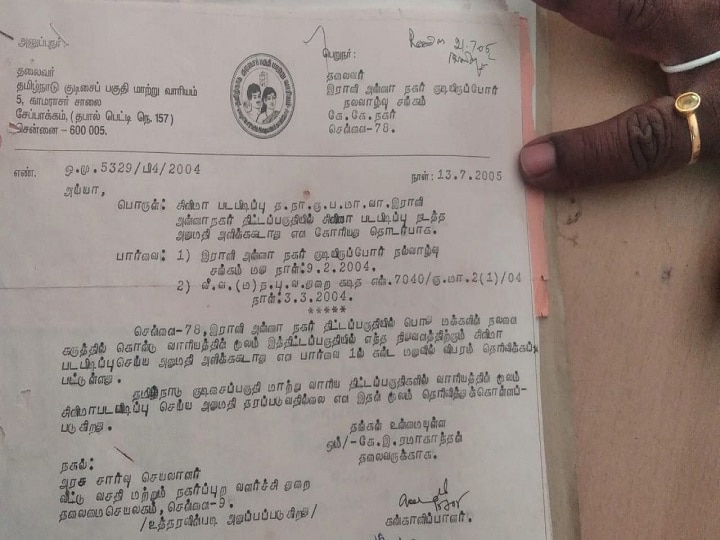 அனுப்புநர்
தலைவர்
தமிழ்நாடு குடிசைப் பகுதி மாற்று வாரியம்
5, காமராசர் சாலை
சேப்பாக்கம், (தபால் பெட்டி நெ. 157)
சென்னை - 600 005.
பெறுநர்:
தலைவர்
இராணி அன்னா நகர் குடியிருப்போர்
நலவாழ்வு சங்கம்
கே.கே.நகர்
சென்னை-78.
21-7-05
எண். ஒ.மு.5329/பி4/2004
நாள்:13.7.2005
அய்யா,
பொருள்: சினிமா படபிடிப்பு த.நா.கு.ப.மா.வா.இராணி
அன்னாநகர் திட்டப்பகுதியில் சினிமா படபிடிப்பு நடத்த
அனுமதி அளிக்ககூடாது என கோரியது தொடர்பாக.
பார்வை: 1) இராணி அன்னா நகர் குடியிருப்போர் நல்வாழ்வு
சங்கம் மனு நாள்:9.2.2004.
2) வீ.வ.(ம)ந.பு.வ.துறை கடித எண்.7040/கு.மா.2(1)/04
நாள்:3.3.2004.
*****
சென்னை-78,இராணி அன்னா நகர் திட்டப்பகுதியில் பொது மக்களின் நலனை
கருத்தில் கொண்டு வாரியத்தின் மூலம் இத்திட்டப்பகுதியில் எந்த நிறுவனத்திற்கும் சினிமா
படபிடிப்புசெய்ய அனுமதி அளிக்ககூடாது என பார்வை 1ல் கண்ட மனுவில் விபரம் தெரிவிக்கப்
பட்டுள்ளது.
தமிழ்நாடு குடிசைப்பகுதி மாற்று வாரிய திட்டப்பகுதிகளில் வாரியத்தின் மூலம்
சினிமாபடபிடிப்பு செய்ய அனுமதி தரப்படுவதில்லை என இதன் மூலம் தெரிவித்துக்கொள்ளப்-
படுகிறது.
தங்கள் உண்மையுள்ள
ஒம்/-கே.இ.ரமாகாந்தன்
தலைவருக்காக.
நகல்:
அரசு சார்வு செயலாளர்
வீட்டு வசதி மற்றும் நகர்ப்புற வளர்ச்சி துறை
தலைமைசெயலகம்,சென்னை-9.
/உத்தரவின்படி அனுப்பப்படுகிறது/
கண்காணிப்பாளர்.